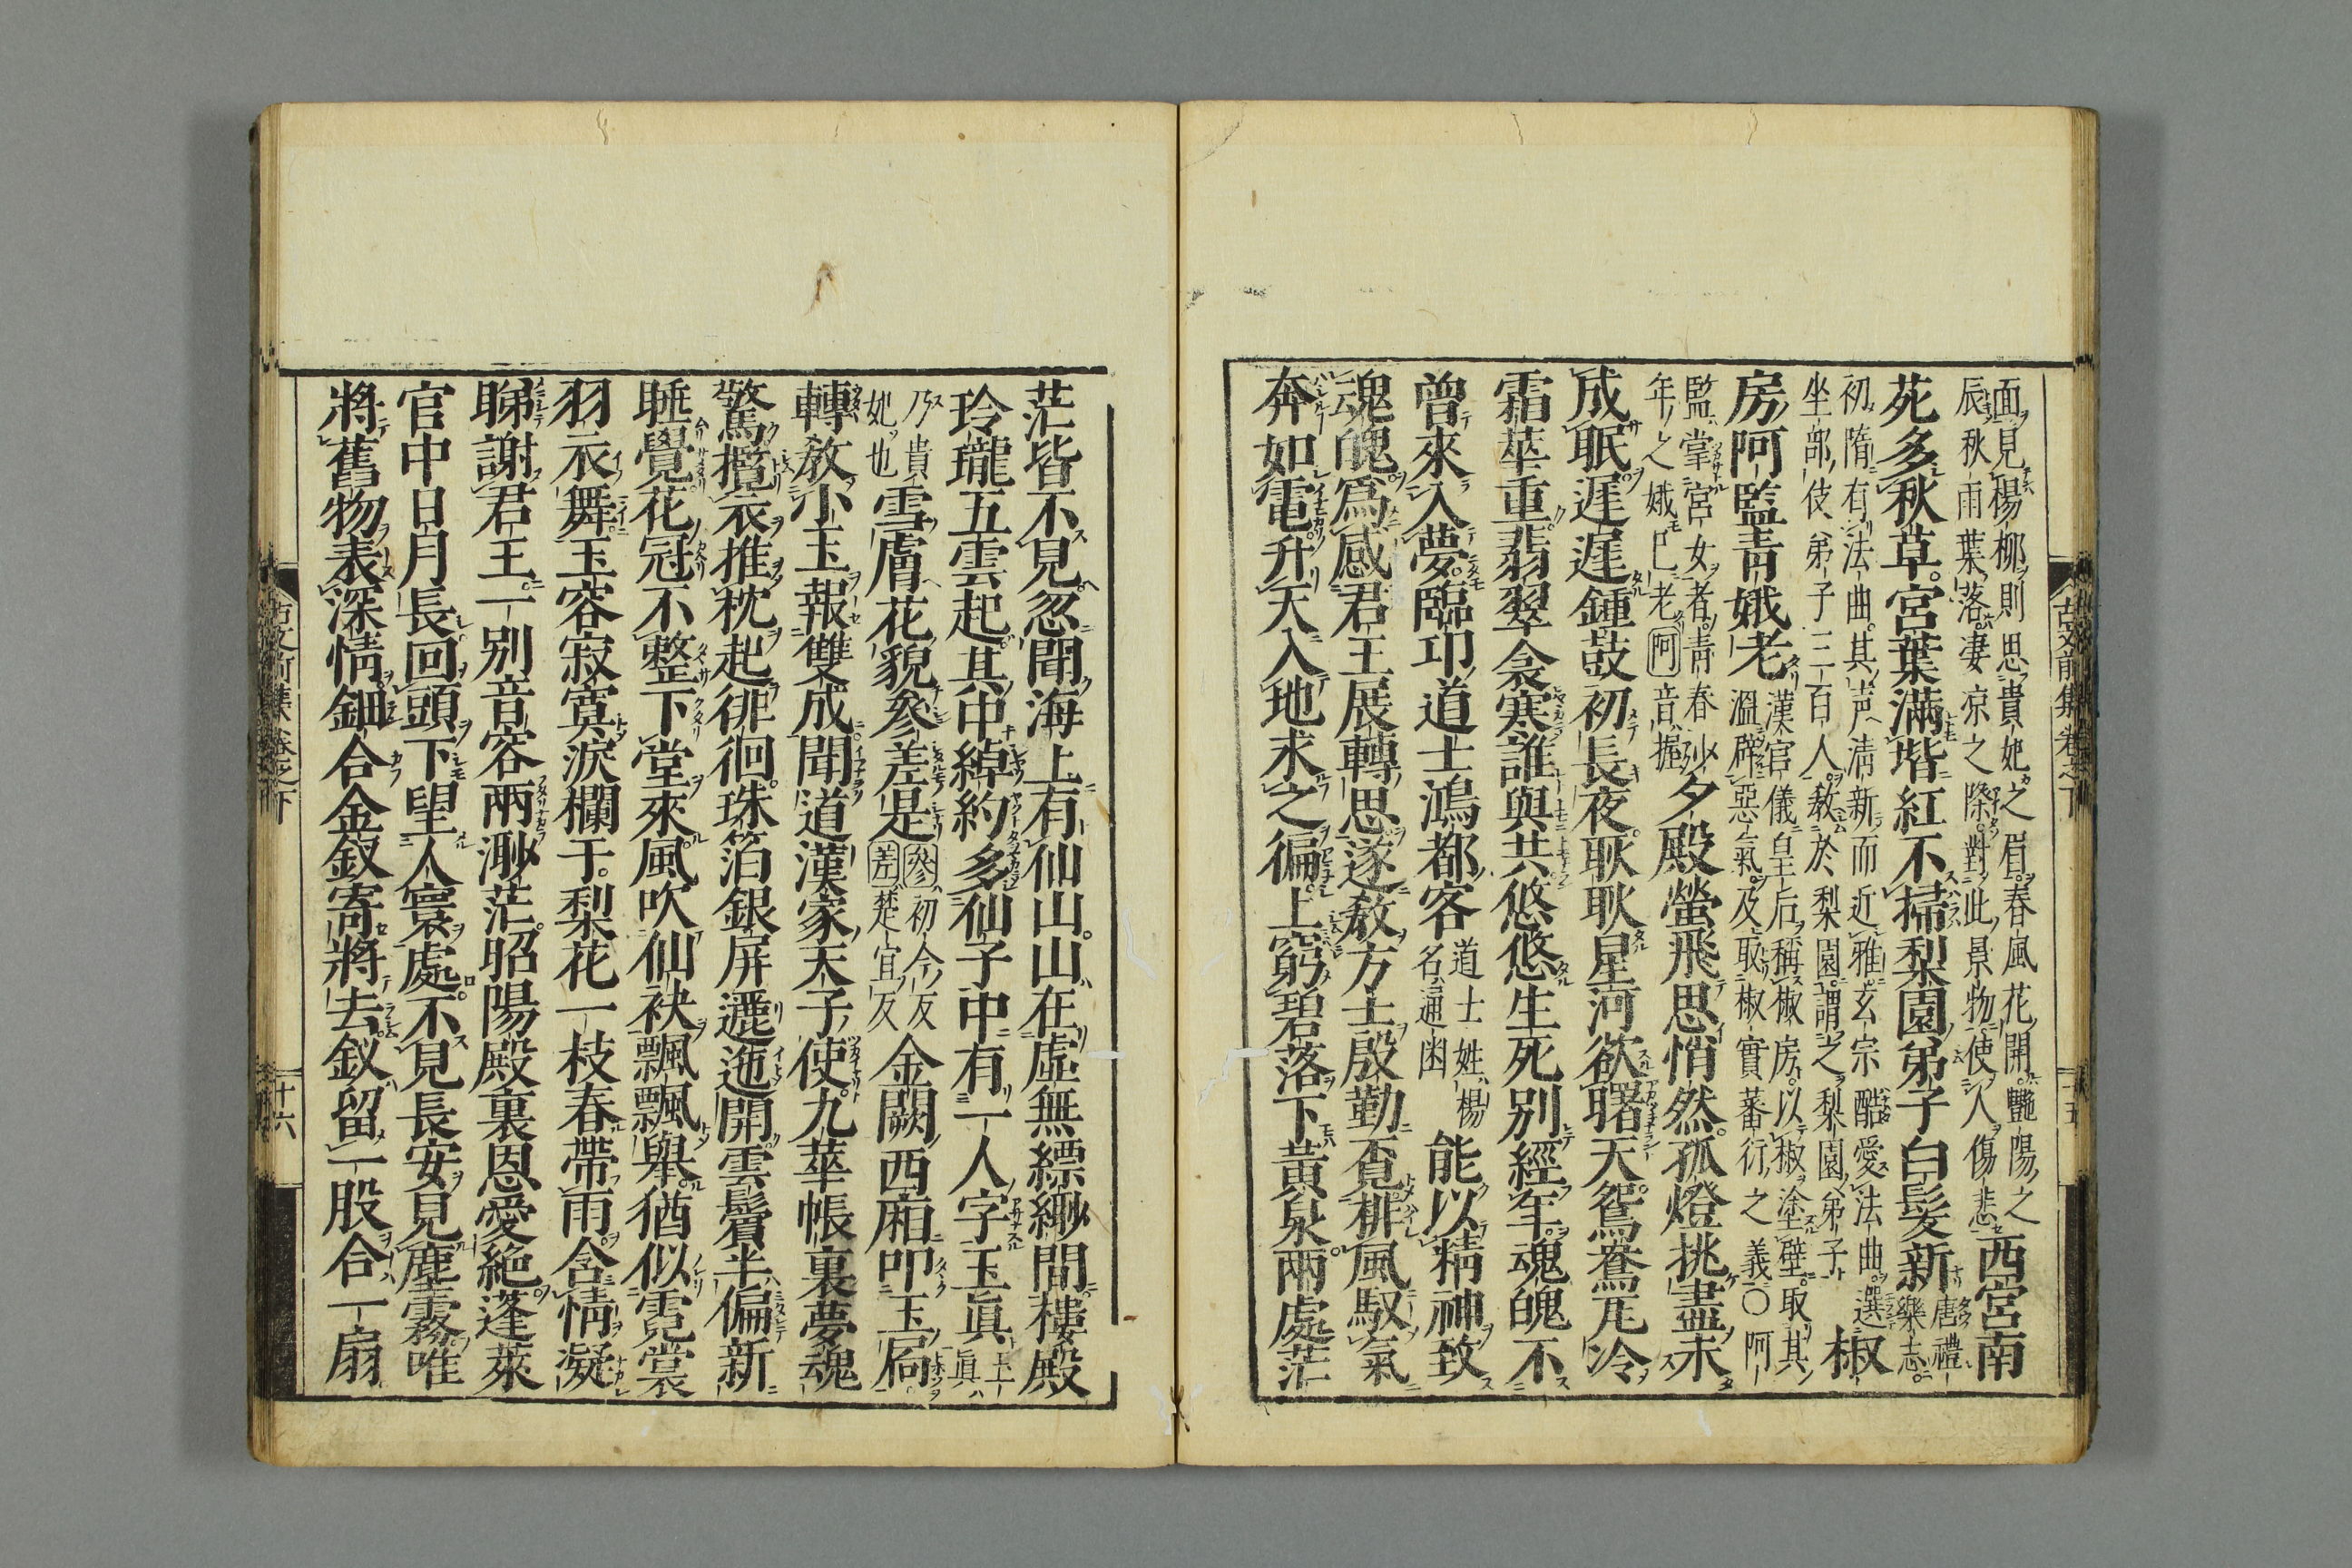 古文前集卷之下
面見楊柳則思貴妃之眉春風花開豔陽之
辰秋雨葉落凄凉之際對此景物使人傷悲西宮南
死多秋草宮葉滿堦紅不掃梨園弟子白髮新唐禮樂志
初隋有法曲其声清新而近雅玄宗酷愛法曲選
坐部伎弟子三百人敎於梨園謂之梨園弟子椒
房阿監靑娥老漢官儀皇后稱椒房以椒塗壁取其
溫辟惡氣及取椒實蕃衍之義〇阿
監掌宮女者靑春少
年之娥已老阿音握夕殿螢飛思悄然孤燈挑盡未
成眠遲遲鍾鼓初長夜耿耿星河欲曙天鴛鴦瓦冷
霜華重翡翠衾寒誰與共悠悠生死別經年魂魄不
曾來入夢臨卭道士鴻都客道士姓楊名通幽能以精神致
魂魄爲感君王展轉思遂敎方士殷勤覔排風馭氣
奔如電升天入地求之徧上窮碧落下黃泉兩處茫
茫皆不見忽聞海上有仙山山在虛無縹緲間樓殿
玲瓏五雲起其中綽約多仙子中有一人字玉眞玉眞
乃貴妃也雪膚花貌參差是參初今反差楚宜反金闕西廂叩玉扃
轉敎小玉報雙成聞道漢家天子使九華帳裏夢魂
驚攬衣推枕起徘徊珠箔銀屏邐迤開雲鬢半偏新
睡覺花冠不整下堂來風吹仙袂飄飄舉猶似霓裳
羽衣舞玉容寂寞淚欄干梨花一枝春帶雨含情凝
睇謝君王一別音容兩渺茫昭陽殿裏恩愛絶蓬萊
宮中日月長回頭下望人寰處不見長安見塵霧唯
將舊物表深情鈿合金釵寄將去釵留一股合一扇
古文前集卷之下
十六